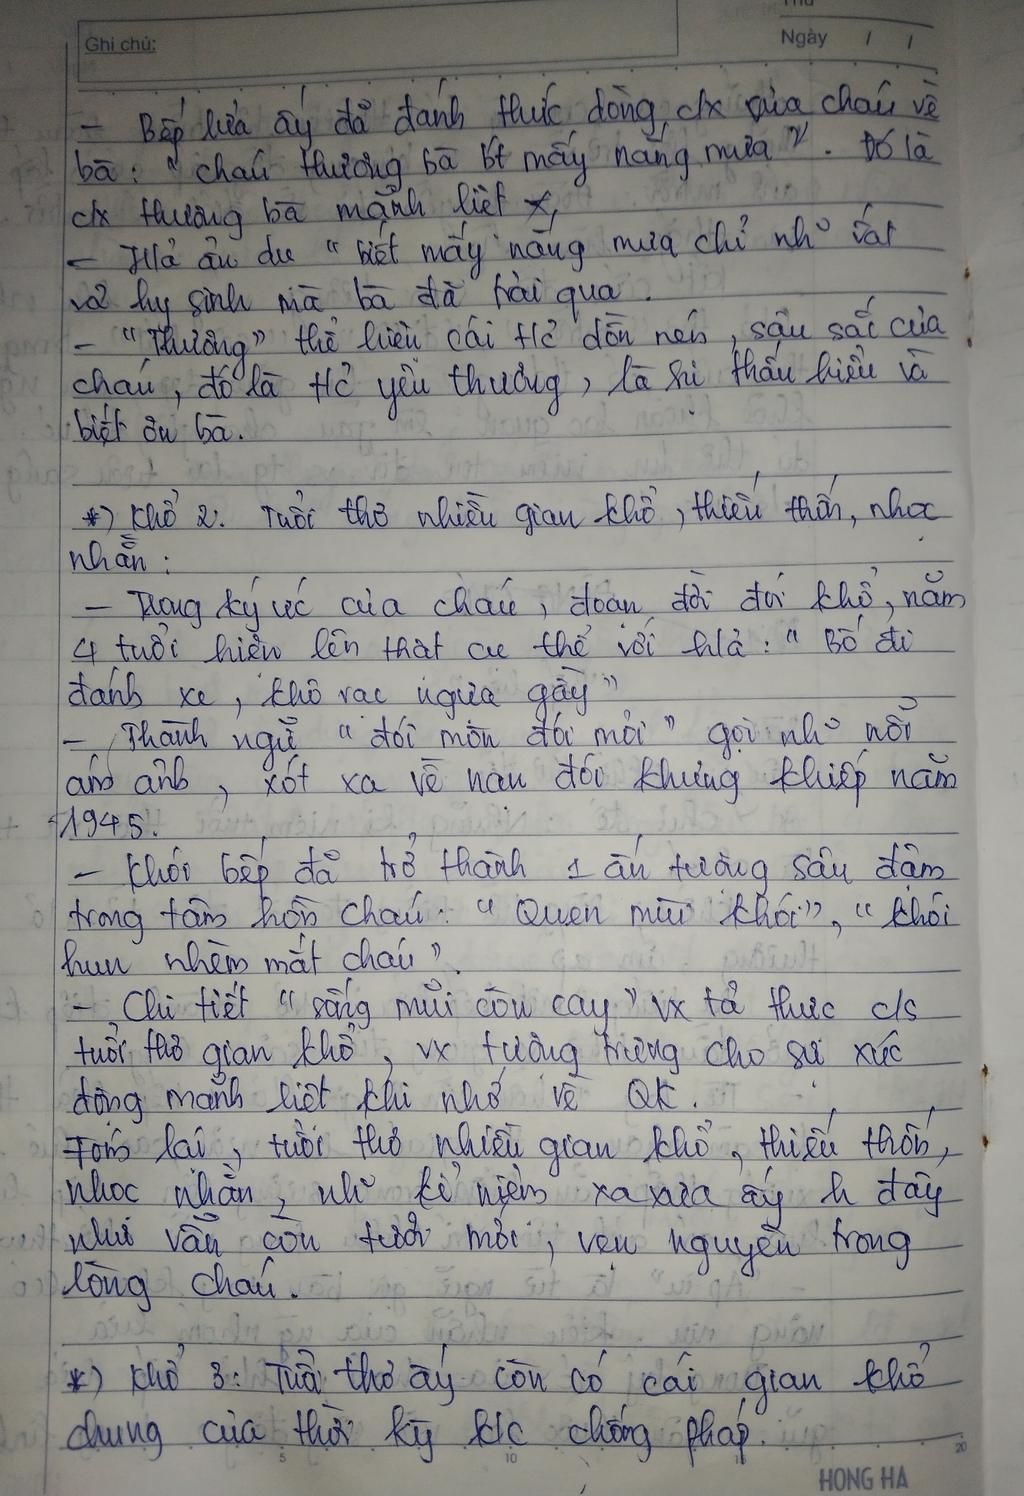 Thứ
Ghi chú:
Ngày / /
- Bếp lửa ấy đã đánh thức dòng c/x của cháu về
bà: "cháu thương bà bt mấy nắng mưa". Đó là
c/x thương bà mãnh liệt
- H/a ẩn dụ "biết mấy nắng mưa chỉ nh~ vất
vả hy sinh mà bà đã trải qua.
- "Thương" thể hiện cái t/c dồn nén, sâu sắc của
cháu, đó là t/c yêu thương, là sự thấu hiểu và
biết ơn bà.
*) Khổ 2: Tuổi thơ nhiều gian khổ, thiếu thốn, nhọc
nhằn:
- Trong ký ức của cháu, đoạn đời đói khổ, năm
4 tuổi hiện lên thật cụ thể với h/a: "Bố đi
đánh xe, khô rạc ngựa gầy"
- Thành ngữ "đói mòn đói mỏi" gợi nh~ nỗi
ám ảnh, xót xa về nạn đói khủng khiếp năm
1945.
- Khói bếp đã trở thành 1 ấn tượng sâu đậm
trong tâm hồn cháu: "Quen mùi khói", "khói
hun nhèm mắt cháu".
- Chi tiết "sống mũi còn cay" vx tả thực c/s
tuổi thơ gian khổ, vx tượng trưng cho sự xúc
động mãnh liệt khi nhớ về QK.
Tóm lại, tuổi thơ nhiều gian khổ, thiếu thốn,
nhọc nhằn, nh~ kỉ niệm xa xưa ấy h đây
như vẫn còn tươi mới, vẹn nguyên trong
lòng cháu.
*) Khổ 3: Tuổi thơ ấy còn có cái gian khổ
chung của thời kỳ k/c chống Pháp.
5 10 15 20
HONG HA